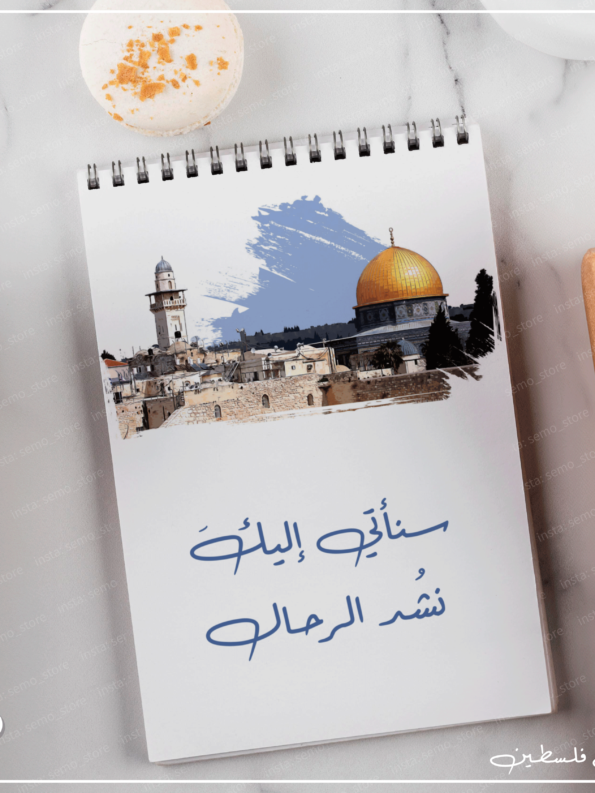 سنأتي إليكَ
نشُد الرحال
فلسطين
insta:semo_store